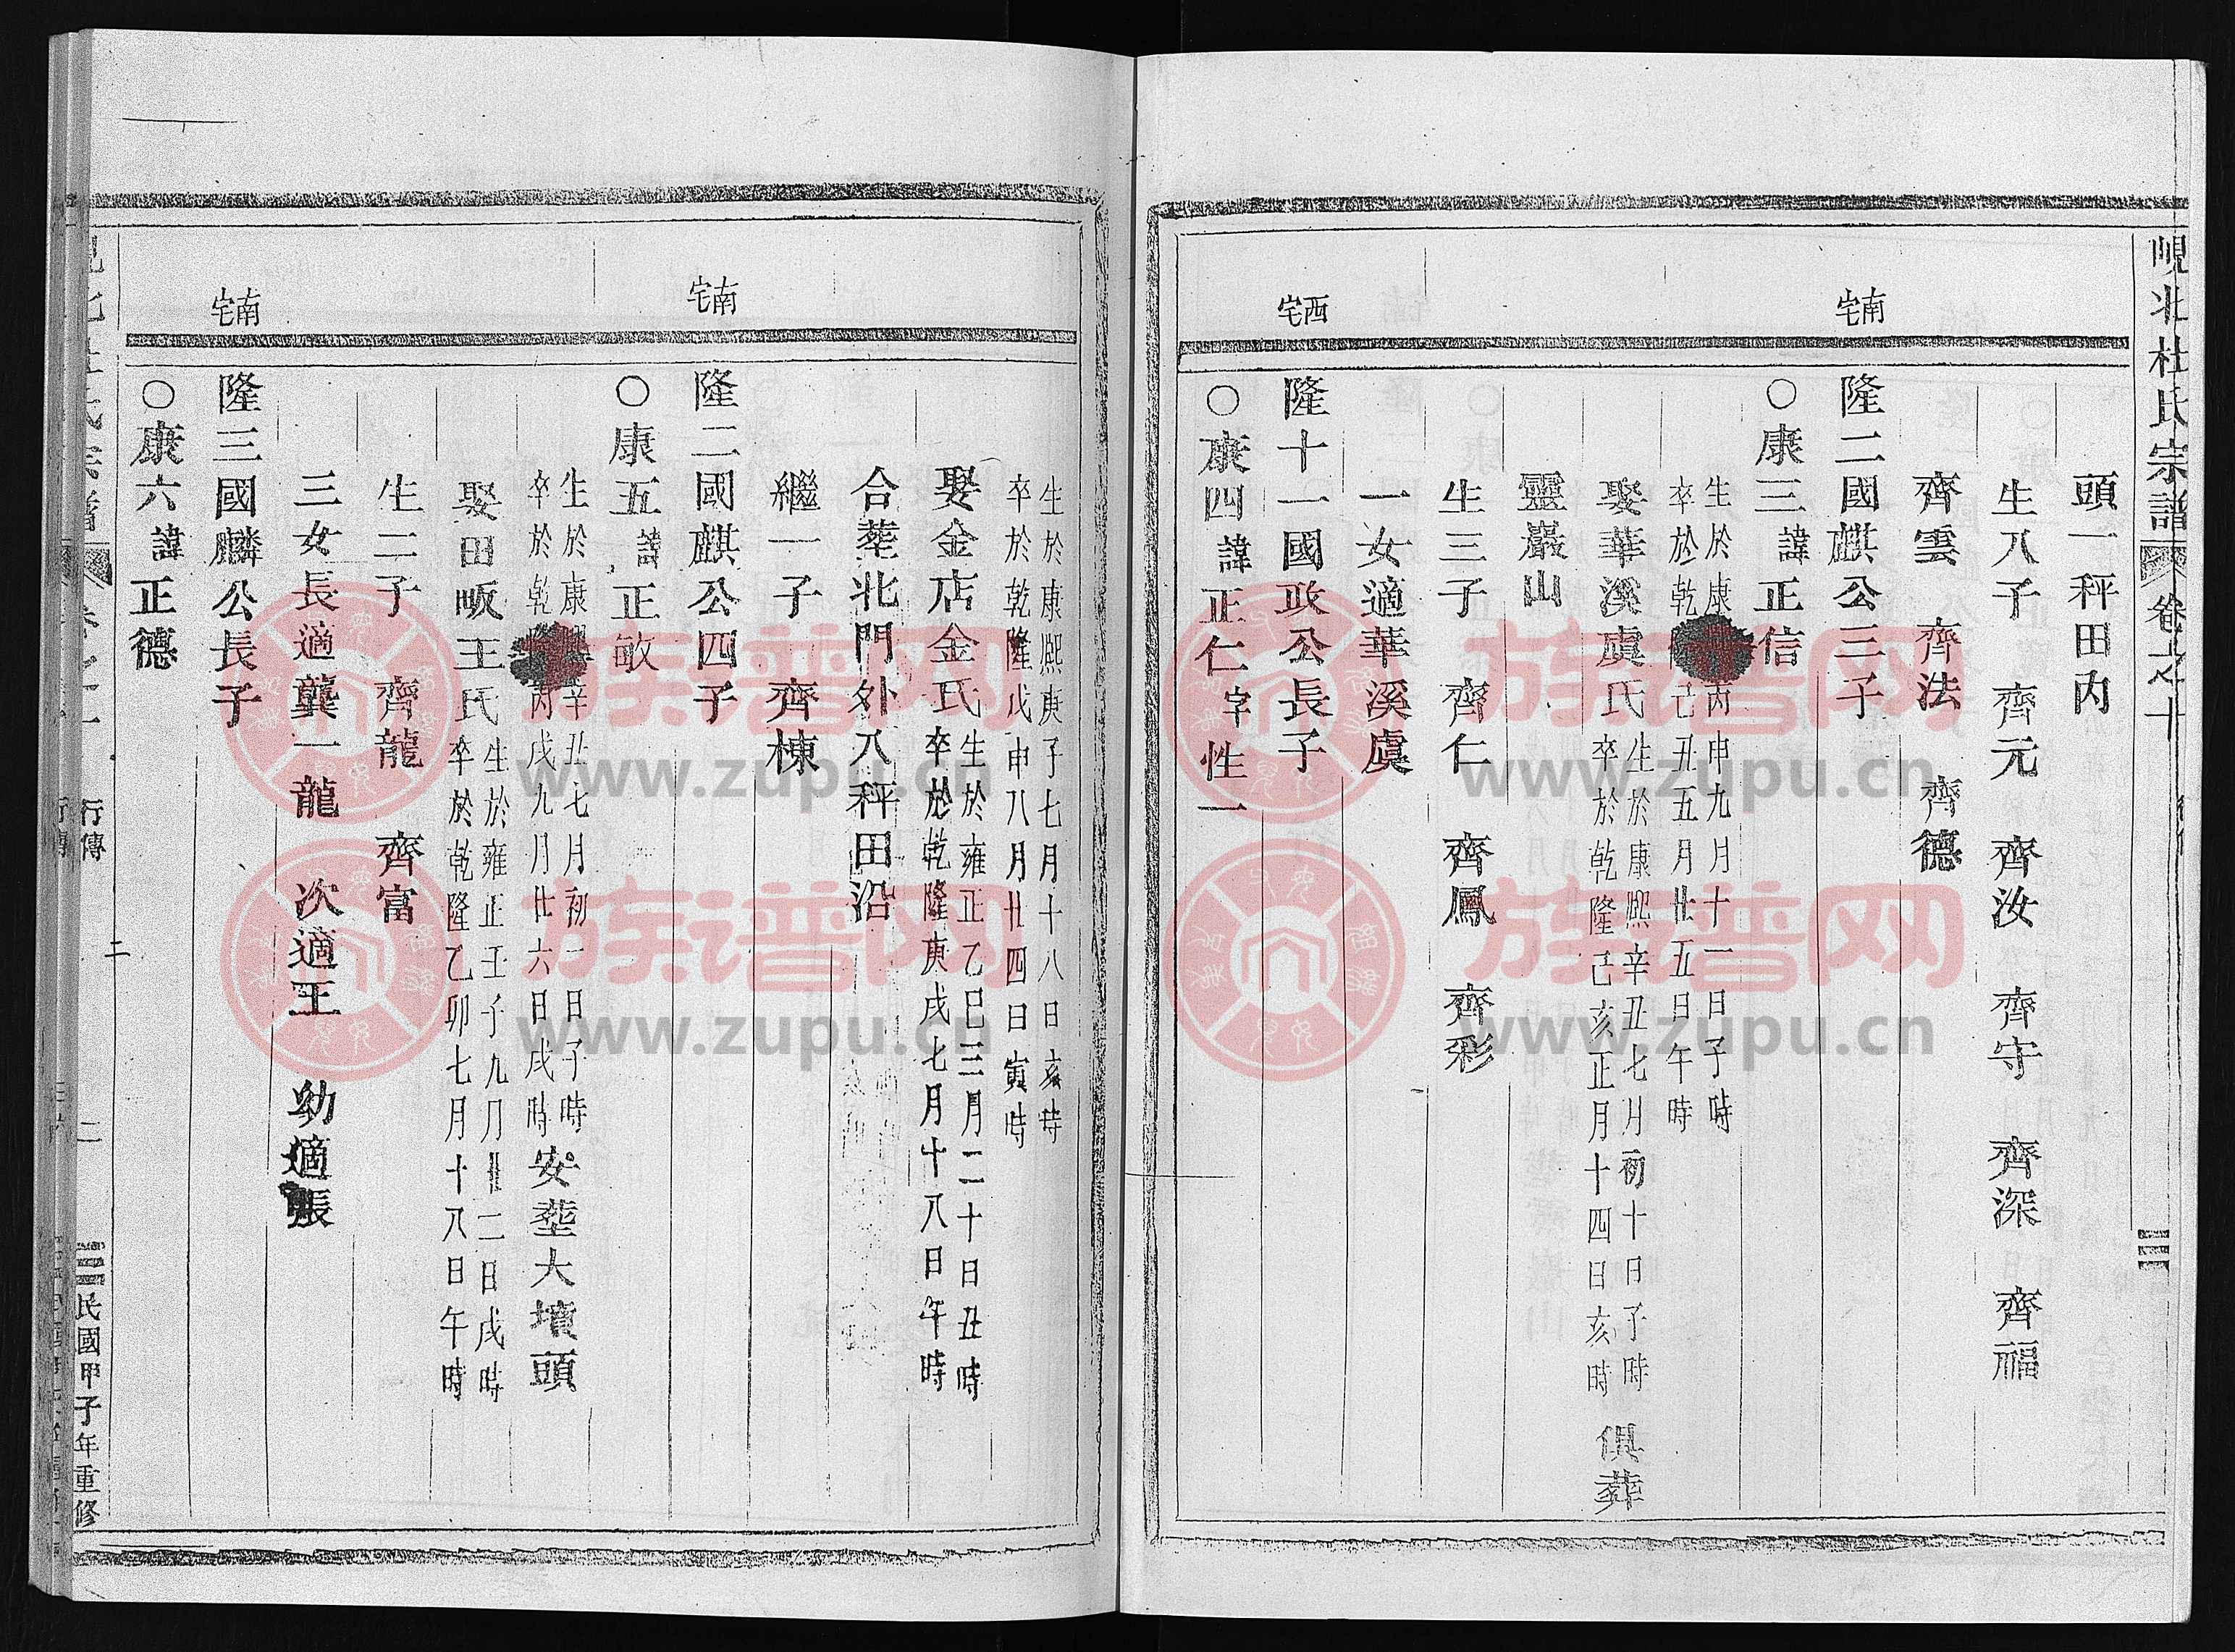 峴北杜氏宗譜 卷之十
頭一秤田內
生八子 齊元 齊汝 齊守 齊深 齊福
齊雲 齊法 齊德
南宅
隆二國麒公三子
○康三諱正信
生於康熙丙申九月十一日子時
卒於乾隆己丑五月廿五日午時
娶華溪虞氏生於康熙辛丑七月初十日子時
卒於乾隆己亥正月十四日亥時 俱葬
靈巖山
生三子 齊仁 齊鳳 齊彩
一女適華溪虞
西宅
隆十一國政公長子
○康四諱正仁字性一
生於康熙庚子七月十八日亥時
卒於乾隆戊申八月廿四日寅時
娶金店金氏生於雍正乙巳三月二十日丑時
卒於乾隆庚戌七月十八日午時
合葬北門外八秤田沿
繼一子 齊棟
南宅
隆二國麒公四子
○康五諱正敏
生於康熙辛丑七月初一日子時
卒於乾隆丙戌九月廿六日戌時安葬大墳頭
娶田畈王氏生於雍正壬子九月廿二日戌時
卒於乾隆乙卯七月十八日午時
生二子 齊龍 齊富
三女長適龔一龍 次適王 幼適張
南宅
隆三國麟公長子
○康六諱正德
行傳 二 民國甲子年重修
族谱网
www.zupu.cn
族谱网
www.zupu.cn
族谱网
www.zupu.cn
族谱网
www.zupu.cn